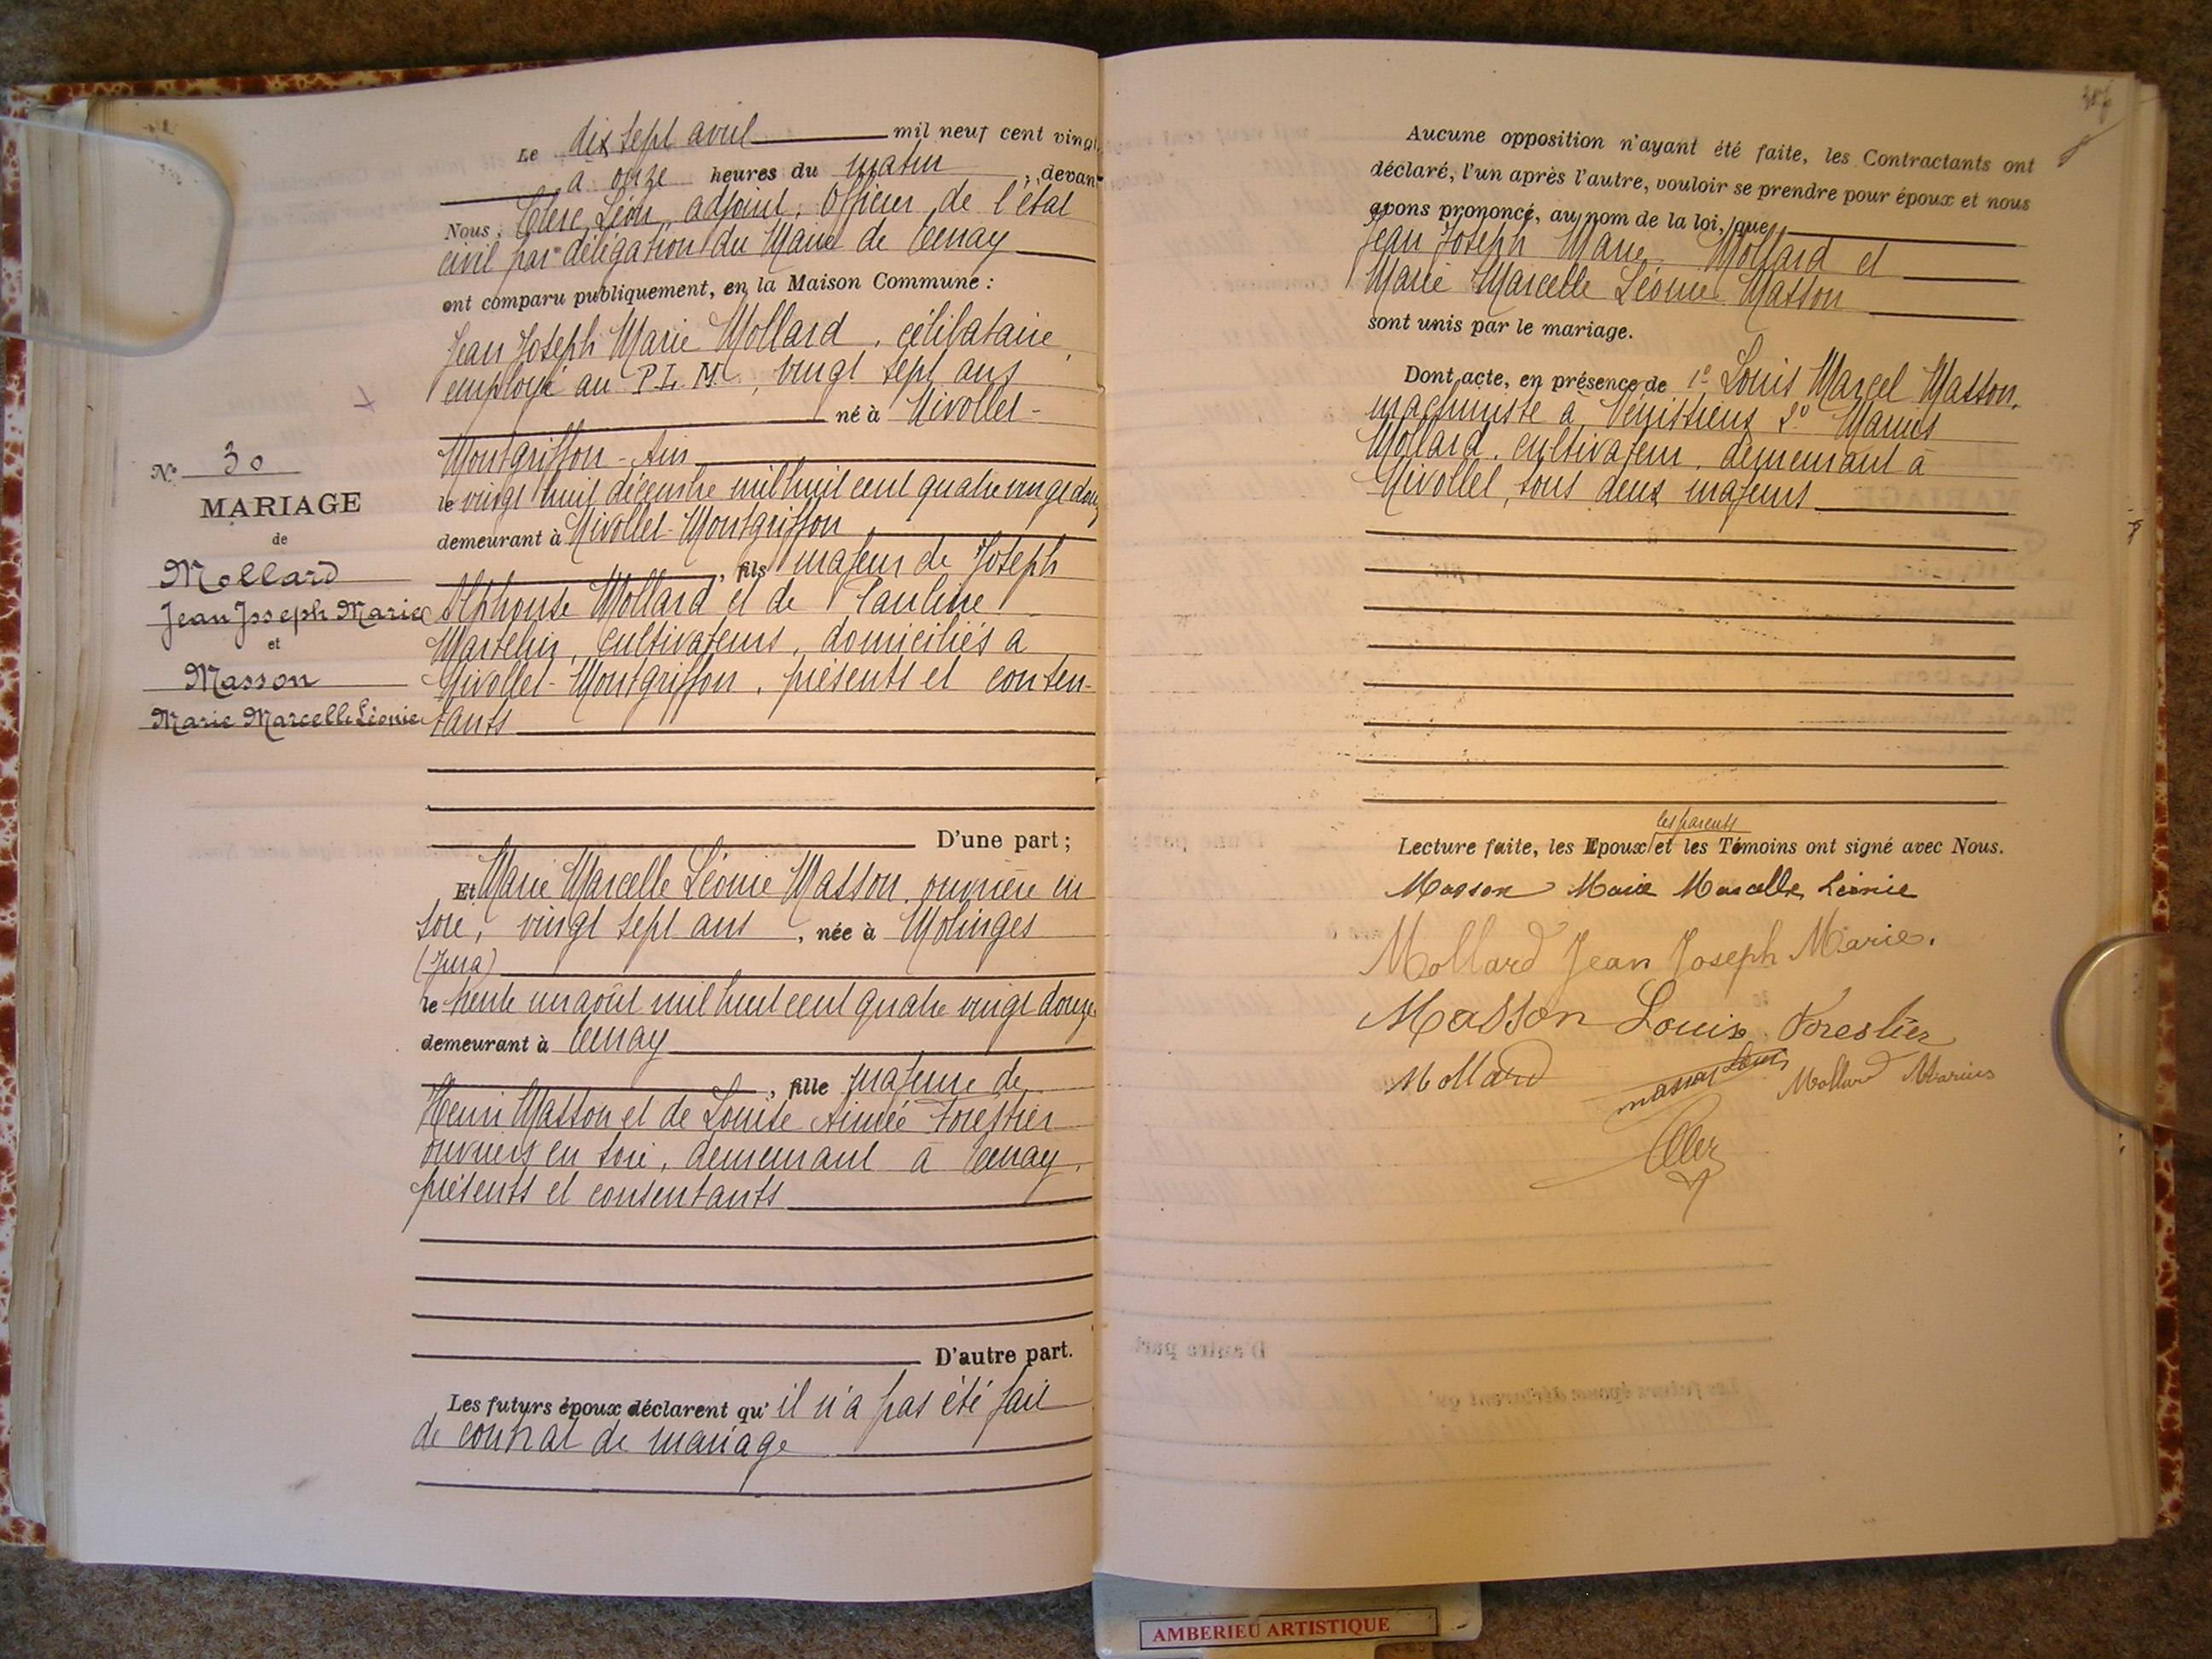 Le dix sept avril mil neuf cent vingt
à onze heures du matin, devant
Nous, Clerc Léon, adjoint, Officier de l'état
civil par délégation du Maire de Tenay
ont comparu publiquement, en la Maison Commune :
Jean Joseph Marie Mollard, célibataire,
employé au P.L.M., vingt sept ans
né à Nivollet-
Montgriffon - Ain
le vingt huit décembre mil huit cent quatre vingt douze
demeurant à Nivollet-Montgriffon
, fils majeur de Joseph
Alphonse Mollard et de Pauline
Martelin, cultivateurs, domiciliés à
Nivollet-Montgriffon, présents et conten-
tants
D'une part ;
N° 30
MARIAGE
de
Mollard
Jean Joseph Marie
et
Masson
Marie Marcelle Léonie
Et Marie Marcelle Léonie Masson, ouvrière en
soie, vingt sept ans, née à Molinges
(Jura)
le trente un août mil huit cent quatre vingt douze
demeurant à Tenay
, fille majeure de
Henri Masson et de Louise Aimée Forestier
ouvriers en soie, demeurant à Tenay,
présents et consentants
D'autre part.
Les futurs époux déclarent qu'il n'a pas été fait
de contrat de mariage
Aucune opposition n'ayant été faite, les Contractants ont
déclaré, l'un après l'autre, vouloir se prendre pour époux et nous
avons prononcé, au nom de la loi, que
Jean Joseph Marie Mollard et
Marie Marcelle Léonie Masson
sont unis par le mariage.
Dont acte, en présence de 1° Louis Marcel Masson,
machiniste à Vénissieux 2° Marius
Mollard, cultivateur, demeurant à
Nivollet, tous deux majeurs
les parents
Lecture faite, les Epoux et les Témoins ont signé avec Nous.
Masson Marie Marcelle Léonie
Mollard Jean Joseph Marie.
Masson Louis Forestier
Mollard Masson Louis Mollard Marius
Clerc
AMBERIEU ARTISTIQUE